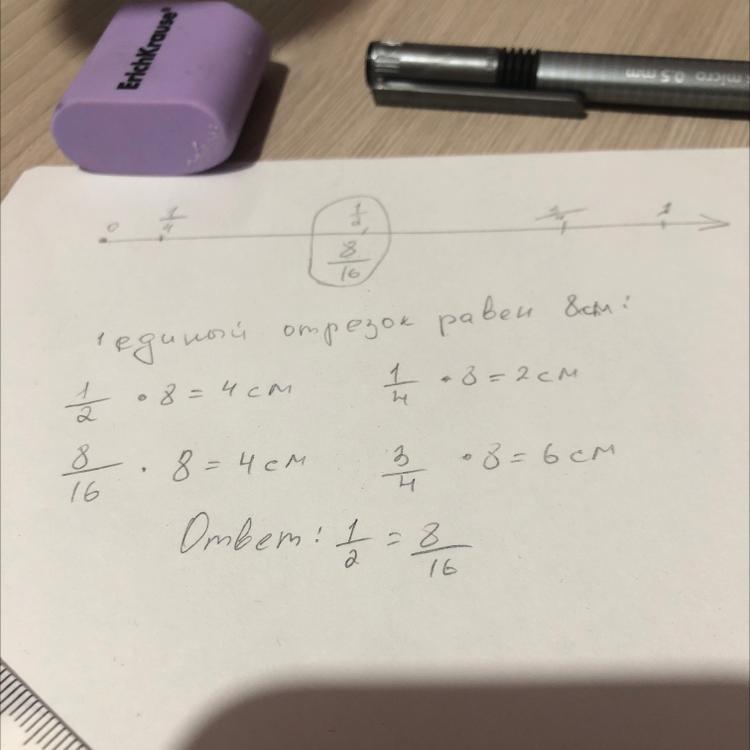 ErichKrause®
micro 0.5 mm
0 1/4 1/2 1
8/16
1 единый отрезок равен 8см:
1/2 · 8 = 4 см 1/4 · 8 = 2 см
8/16 · 8 = 4 см 3/4 · 8 = 6 см
Ответ: 1/2 = 8/16